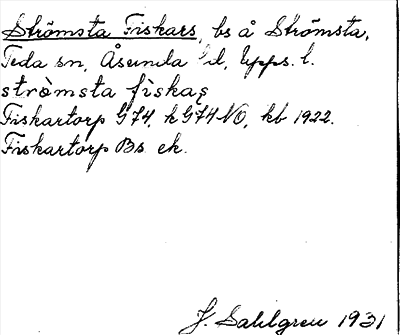 Strömsta Fiskars, bs å Strömsta,
Teda sn, Åsunda hd, Upps. l.
stròmsta fìskaṣ
Fiskartorp G74, k G74 NO, kb 1922.
Fiskartorp Bs ek.
J. Sahlgren 1931